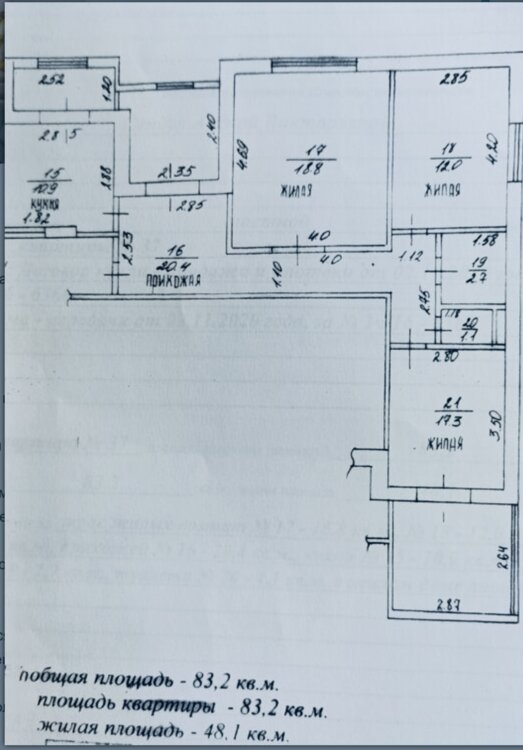 2.52
1.20
2.8 5
2.86
15
10.9
КУХНЯ
1.82
2.40
2.35
2.85
2.53
16
20.4
ПРИХОЖАЯ
4.69
17
18.8
ЖИЛАЯ
4.0
4.0
1.10
2.85
18
12.0
ЖИЛАЯ
4.20
1.12
1.58
19
2.7
2.75
1.18
20
1.1
2.80
21
17.3
ЖИЛАЯ
3.50
2.64
2.87
общая площадь - 83,2 кв.м.
площадь квартиры - 83,2 кв.м.
жилая площадь - 48,1 кв.м.